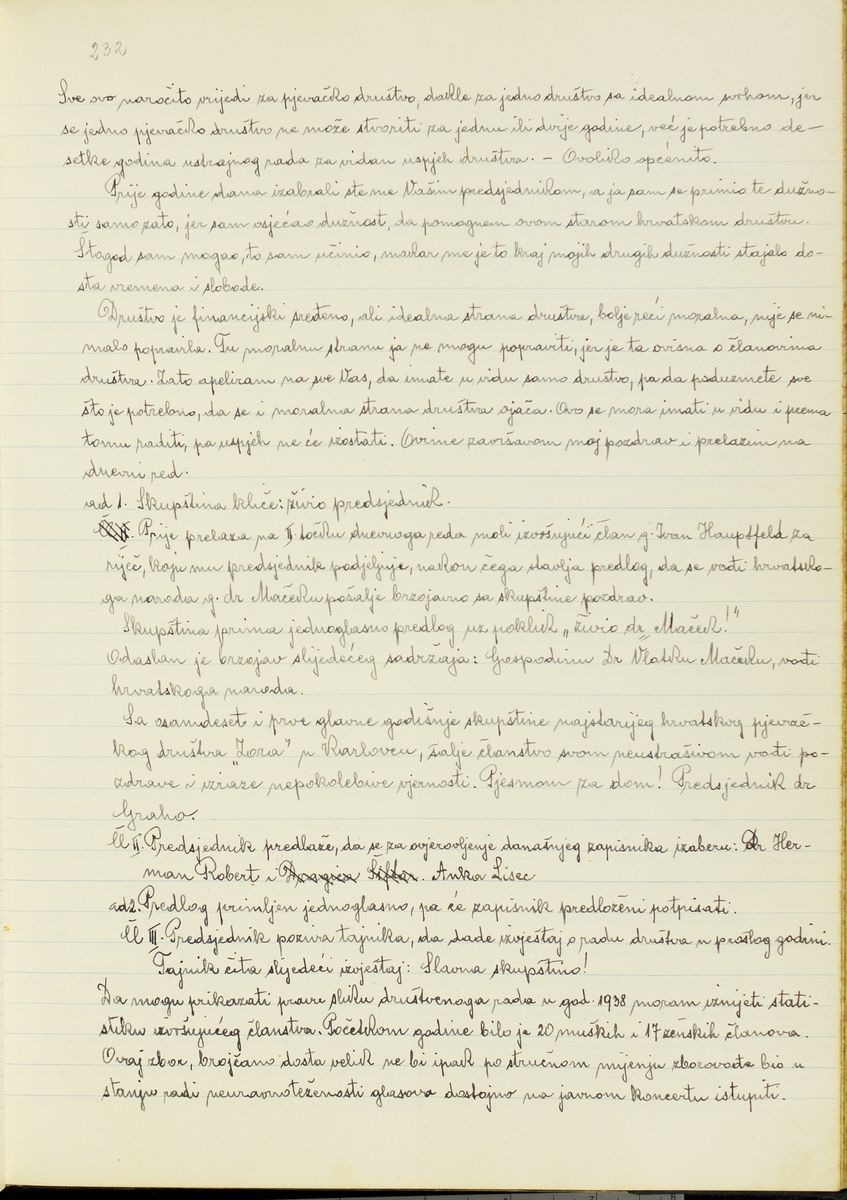 232
Sve ovo naročito vrijedi za pjevačko društvo, dakle za jedno društvo sa idealnom svrhom, jer
se jedno pjevačko društvo ne može stvoriti za jednu ili dvije godine, već je potrebno de-
setke godina ustrajnog rada za vidan uspjeh društva. - Ovoliko općenito.
Prije godine dana izabrali ste me Vašim predsjednikom, a ja sam se primio te dužno-
sti samo zato, jer sam osjećao dužnost, da pomognem ovom starom hrvatskom društvu.
Štagod sam mogao, to sam učinio, makar me je to kraj mojih drugih dužnosti stajalo do-
sta vremena i slobode.
Društvo je financijski sređeno, ali idealna strana društva, bolje reći moralna, nije se ni-
malo popravila. Tu moralnu stranu ja ne mogu popraviti, jer je ta ovisna o članovima
društva. Zato apeliram na sve Vas, da imate u vidu samo društvo, pa da poduzmete sve
što je potrebno, da se i moralna strana društva ojača. Ovo se mora imati u vidu i prema
tomu raditi, pa uspjeh ne će izostati. Ovime završavam moj pozdrav i prelazim na
dnevni red.
ad 1. Skupština kliče: živio predsjednik.
Prije prelaza na II. točku dnevnoga reda moli izvršujući član g. Ivan Hauptfeld za
riječ, koju mu predsjednik podjeljuje, nakon čega stavlja predlog, da se vođi hrvatsko-
ga naroda g. dr Mačeku pošalje brzojavno sa skupštine pozdrav.
Skupština prima jednoglasno predlog uz poklik „živio dr Maček!"
Odaslan je brzojav slijedećeg sadržaja: Gospodinu Dr Vlatku Mačeku, vođi
hrvatskoga naroda.
Sa osamdeset i prve glavne godišnje skupštine najstarijeg hrvatskog pjevač-
kog društva „Zora" u Karlovcu, šalje članstvo svom neustrašivom vođi po-
zdrave i izraze nepokolebive vjernosti. Pjesmom za dom! Predsjednik dr
Graho.
Čl II. Predsjednik predlaže, da se za ovjerovljenje današnjeg zapisnika izaberu: Dr Her-
man Robert i Dragica Šiftar. Anka Lisec
ad2. Predlog primljen jednoglasno, pa će zapisnik predloženi potpisati.
Čl III. Predsjednik poziva tajnika, da dade izvještaj o radu društva u prošloj godini.
Tajnik čita slijedeći izvještaj: Slavna skupštino!
Da mogu prikazati pravu sliku društvenoga rada u god. 1938 moram iznijeti stati-
stiku izvršujućeg članstva. Početkom godine bilo je 20 muških i 17 ženskih članova.
Ovaj zbor, brojčano dosta velik ne bi ipak po stručnom mijenju zborovođe bio u
stanju radi neuravnoteženosti glasova dostojno na javnom koncertu istupiti.